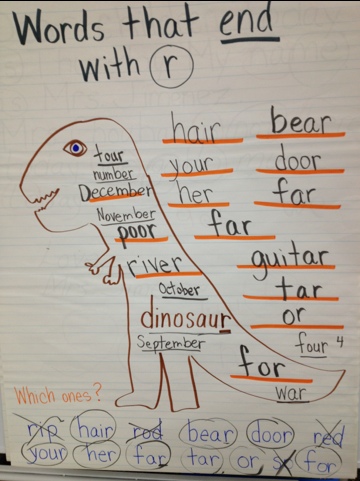 Words that end
with r
hair bear
tour
number
December
your door
her far
November
poor
far
river
guitar
October
tar
dinosaur
or
September
four 4
for
war
Which ones?
rip hair rod bear door red
your her far tar or for